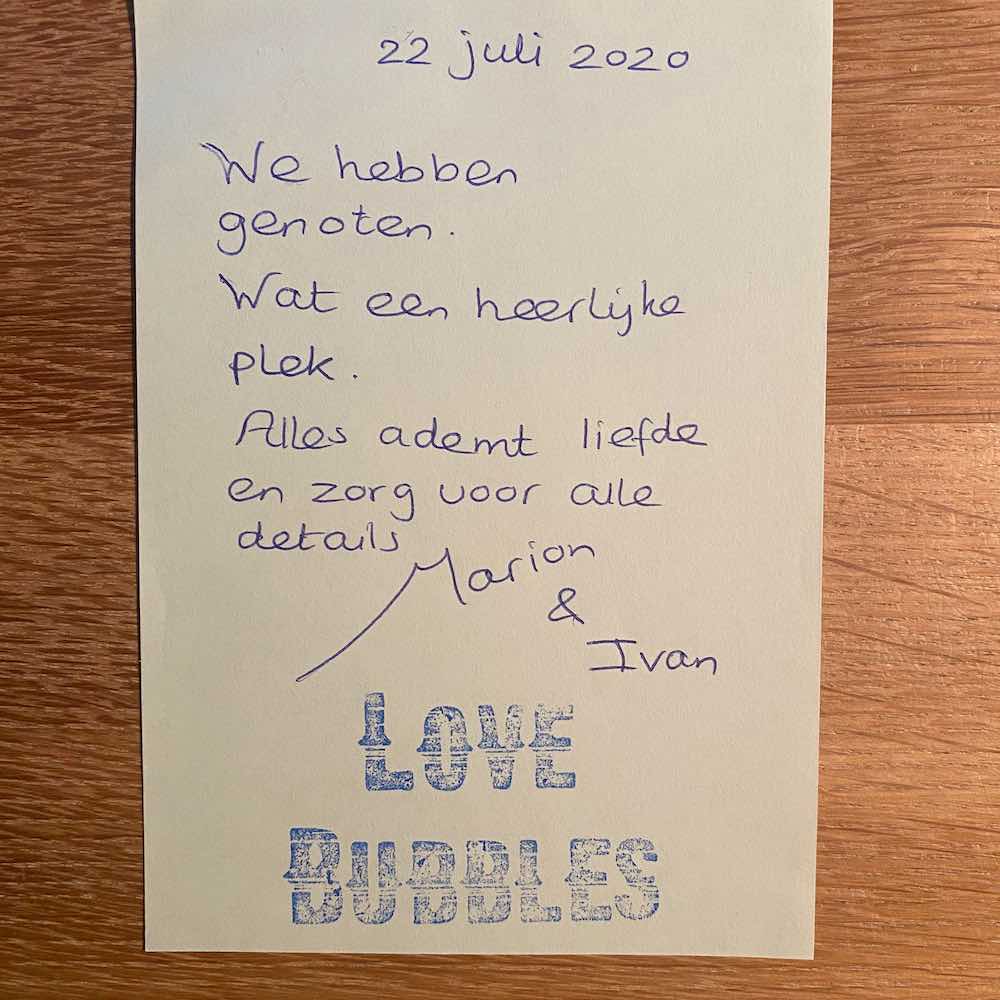 22 juli 2020
We hebben
genoten.
Wat een heerlijke
plek.
Alles ademt liefde
en zorg voor alle
details
Marion
&
Ivan
LOVE
BUBBLES